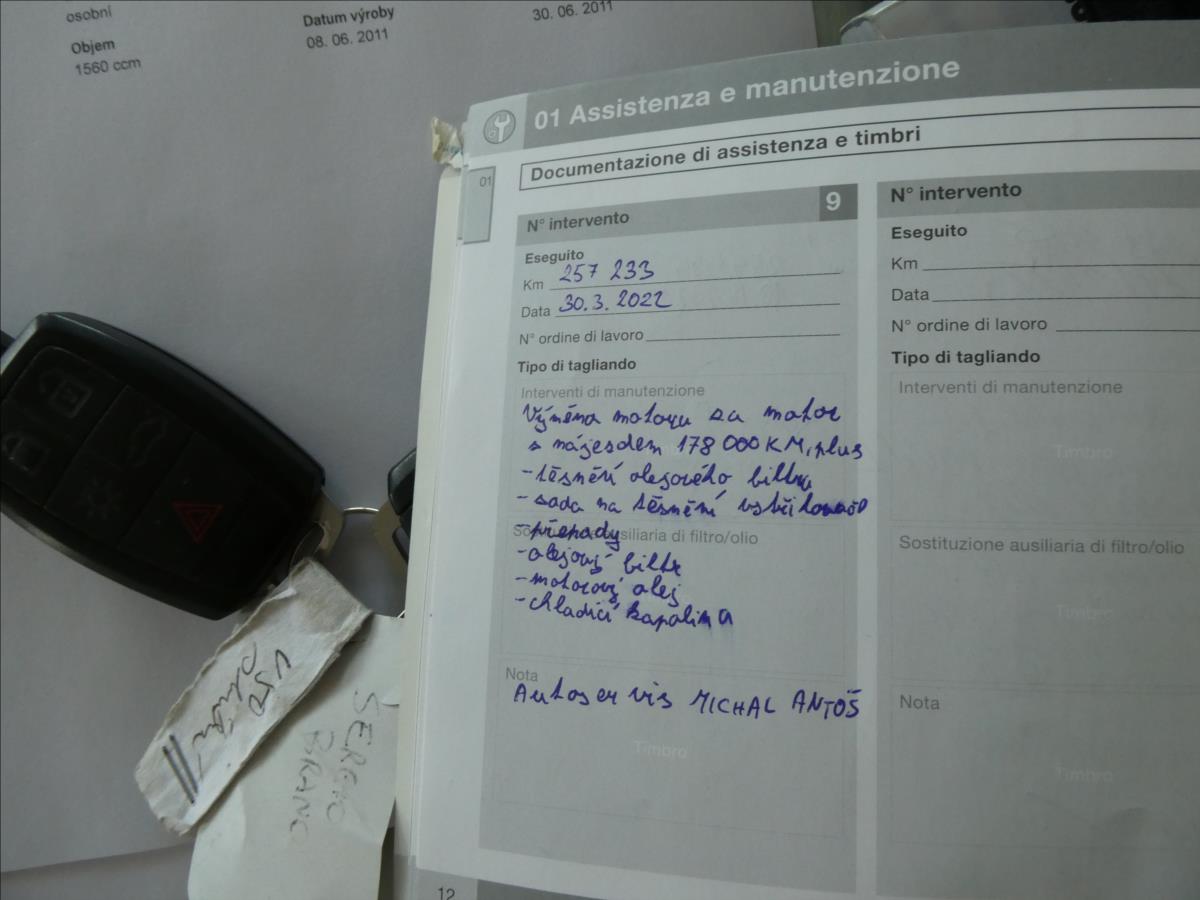 osobní
Objem
1560 ccm
Datum výroby
08. 06. 2011
30. 06. 2011
01 Assistenza e manutenzione
Documentazione di assistenza e timbri
01
N° intervento 9
Eseguito
Km 257 233
Data 30.3.2022
N° ordine di lavoro
Tipo di tagliando
Interventi di manutenzione
Výměna motoru za motor
s nájezdem 178 000 KM, plus
- těsnění olejového filtru
- sada na těsnění vstřikovačů
- přepady
Sostituzione ausiliaria di filtro/olio
- olejový filtr
- motorový olej
- chladící kapalina
Nota
Autoservis MICHAL ANTOŠ
Timbro
N° intervento
Eseguito
Km
Data
N° ordine di lavoro
Tipo di tagliando
Interventi di manutenzione
Timbro
Sostituzione ausiliaria di filtro/olio
Timbro
Nota
Timbro
12
V50
SERGIO